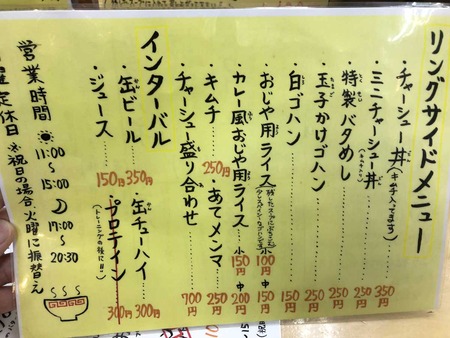 リングサイドメニュー
・チャーシュー丼(キムチ入ってます)…350円
・ミニチャーシュー丼…250円
・特製バタめし…250円
・玉子かけゴハン…250円
・白ゴハン…150円
・おじや用ライス 小100円 中150円
・カレー風おじや用ライス 小150円 中200円
・キムチ…250円 ・あてメンマ…250円
・チャーシュー盛り合わせ…700円
インターバル
・缶ビール…350円 ・缶チューハイ…300円
・ジュース…150円 ・プロテイン(トレーニングの後に!!)…300円
営業時間
11:00〜15:00
17:00〜20:30
曜定休日 ※祝日の場合、火曜に振替え